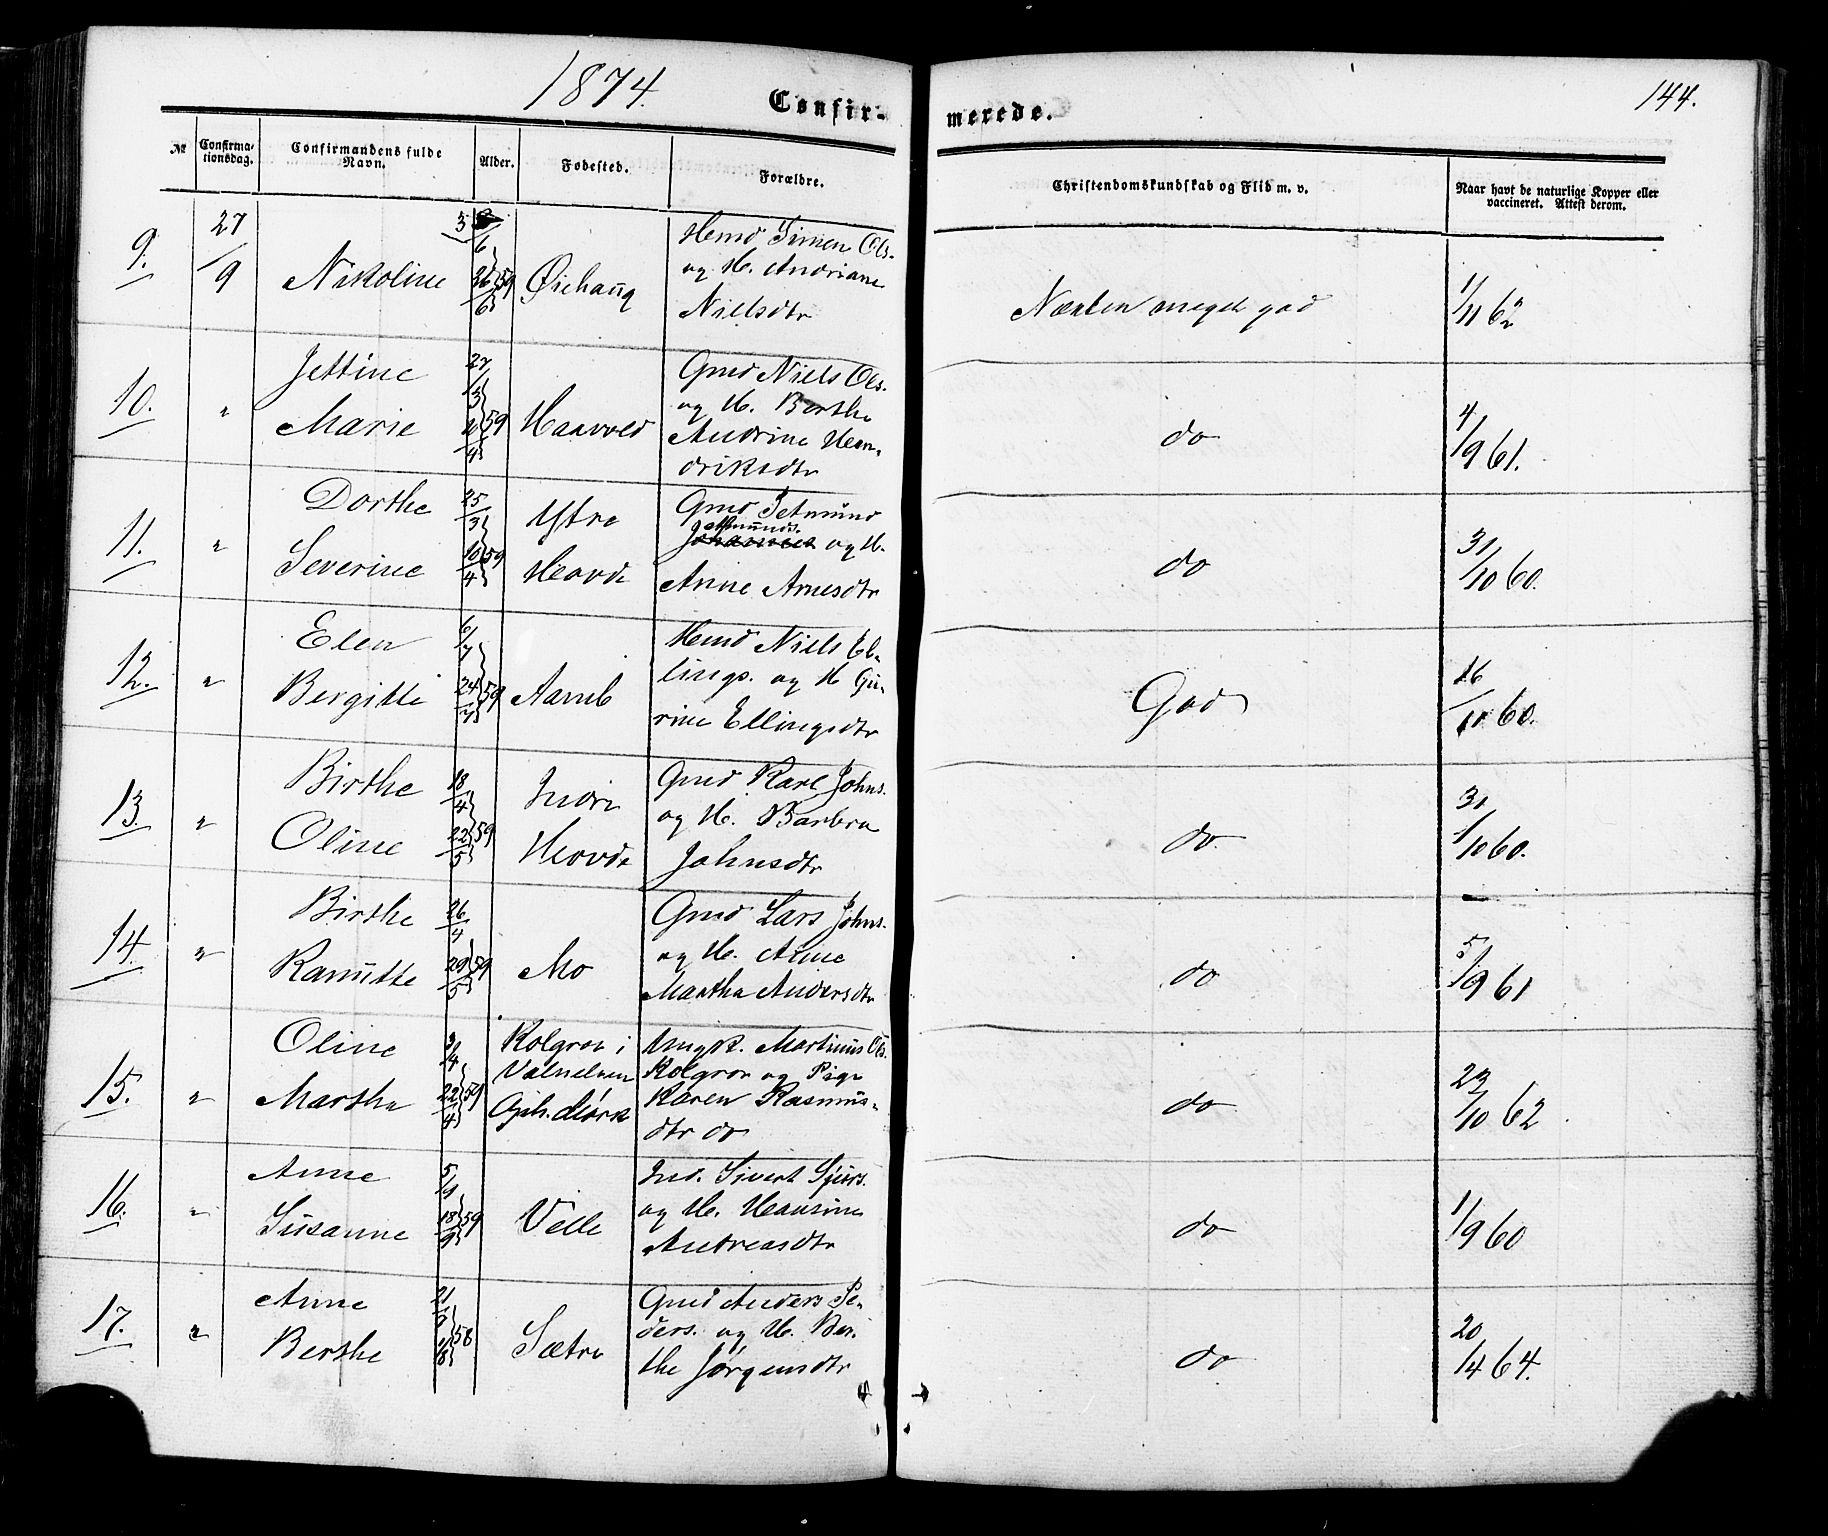 1874.
144.
Confir-
merede.
№
Confirma-
tionsdag.
Confirmandens fulde
Navn.
Alder.
Fødested.
Forældre.
Christendomskundskab og Flid m. v.
Naar havt de naturlige Kopper eller
vaccineret. Attest derom.
9.
27/9
Nikoline
3/6 26/6 59
Øiehaug
Hmd Simen Ols.
og H. Andriane
Nielsdtr
Næsten meget god
1/11 62
10.
"
Jettine
Marie
27/3 4 59
Haavoed
Gmd Niels Ols.
og H. Berthe
Andrine Hen-
driksdtr
do
4/9 61.
11.
"
Dorthe
Severine
25/3 10/4 59
Ytre
Hovde
Gmd Jetmund
Jetmunds.
og H.
Anne Arnesdtr
do
31/10 60.
12.
"
Elen
Bergitte
6/7 24/7 59
Aamb
Hmd Niels El-
lings. og H Gu-
rine Ellingsdtr
God
16/11 60.
13.
"
Birthe
Oline
18/4 22/5 59
Indre
Hovde
Gmd Karl Johns.
og H. Barbra
Johnsdtr
do.
31/10 60.
14.
"
Birthe
Kanutte
26/4 29/5 59
Mo
Gmd Lars Johns.
og H. Anne
Martha Andersdtr
do
5/9 61
15.
"
Oline
Martha
3/4 22/4 59
Kolgrov i
Valnelven
Gph. Mørk
Ungk. Martinus Ols.
Kolgrov og Pige
Karen Rasmus-
dtr do
do
23/10 62
16.
"
Anne
Susanne
5/9 18/9 59
Velle
Ind. Sivert Sjurs.
og H. Hansine
Andreasdtr
do
1/9 60
17.
"
Anne
Berthe
58
Sætre
Gmd Anders Pe-
ders. og H. Ber-
the Jørgensdtr
do
20/4 64.